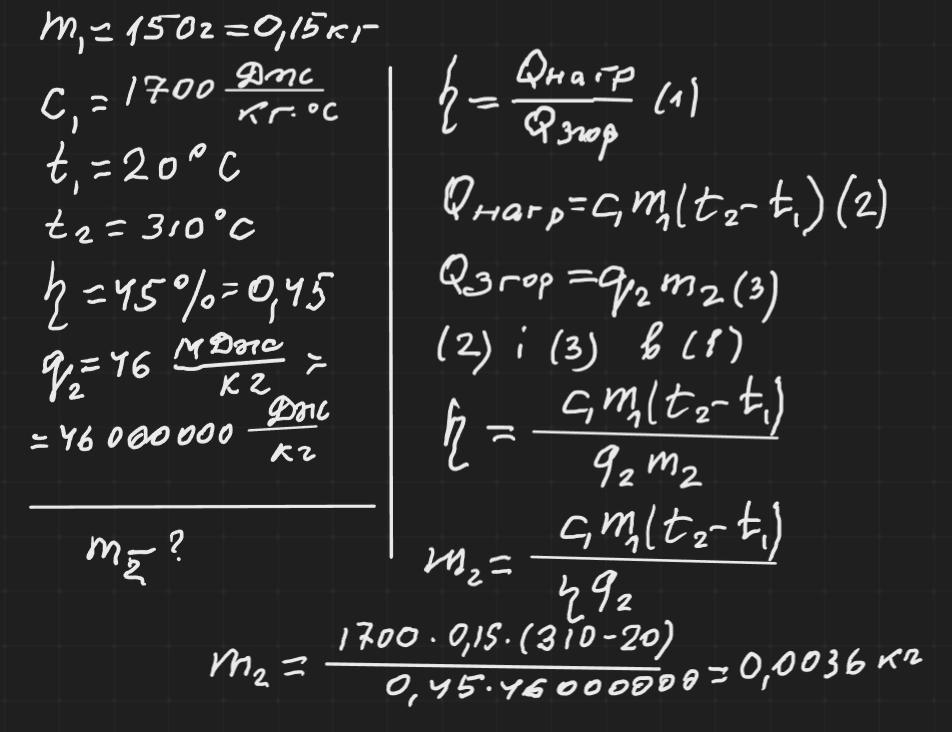 m₁ = 150г = 0,15 кг
c₁ = 1700 Дж/(кг·°C)
t₁ = 20°C
t₂ = 310°C
η = 45% = 0,45
q₂ = 46 МДж/кг =
= 46 000 000 Дж/кг
m₂ - ?
η = Qнагр/Qзгор (1)
Qнагр = c₁m₁(t₂ - t₁) (2)
Qзгор = q₂m₂ (3)
(2) і (3) в (1)
η = c₁m₁(t₂ - t₁)/(q₂m₂)
m₂ = c₁m₁(t₂ - t₁)/(ηq₂)
m₂ = 1700 · 0,15 · (310 - 20)/(0,45 · 46 000000) = 0,0036 кг